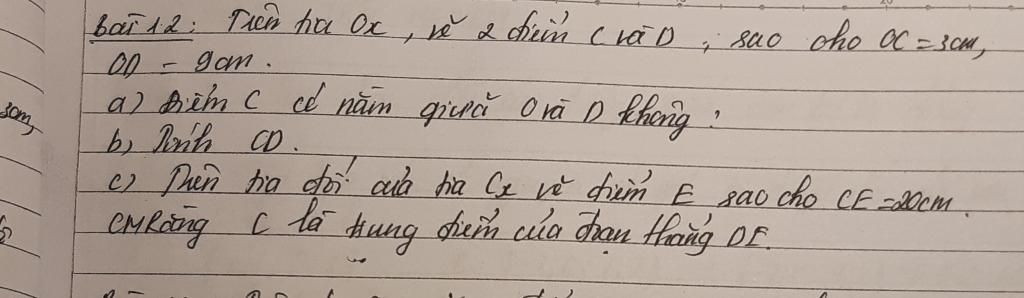 Bài 12: Trên tia Ox, vẽ 2 điểm C và D, sao cho OC = 3cm,
OD = 9cm.
a) Điểm C có nằm giữa O và D không?
b) Tính CD.
c) Trên tia đối của tia Cx vẽ điểm E sao cho CE = 20cm.
CMRằng C là trung điểm của đoạn thẳng DE.
3cm,